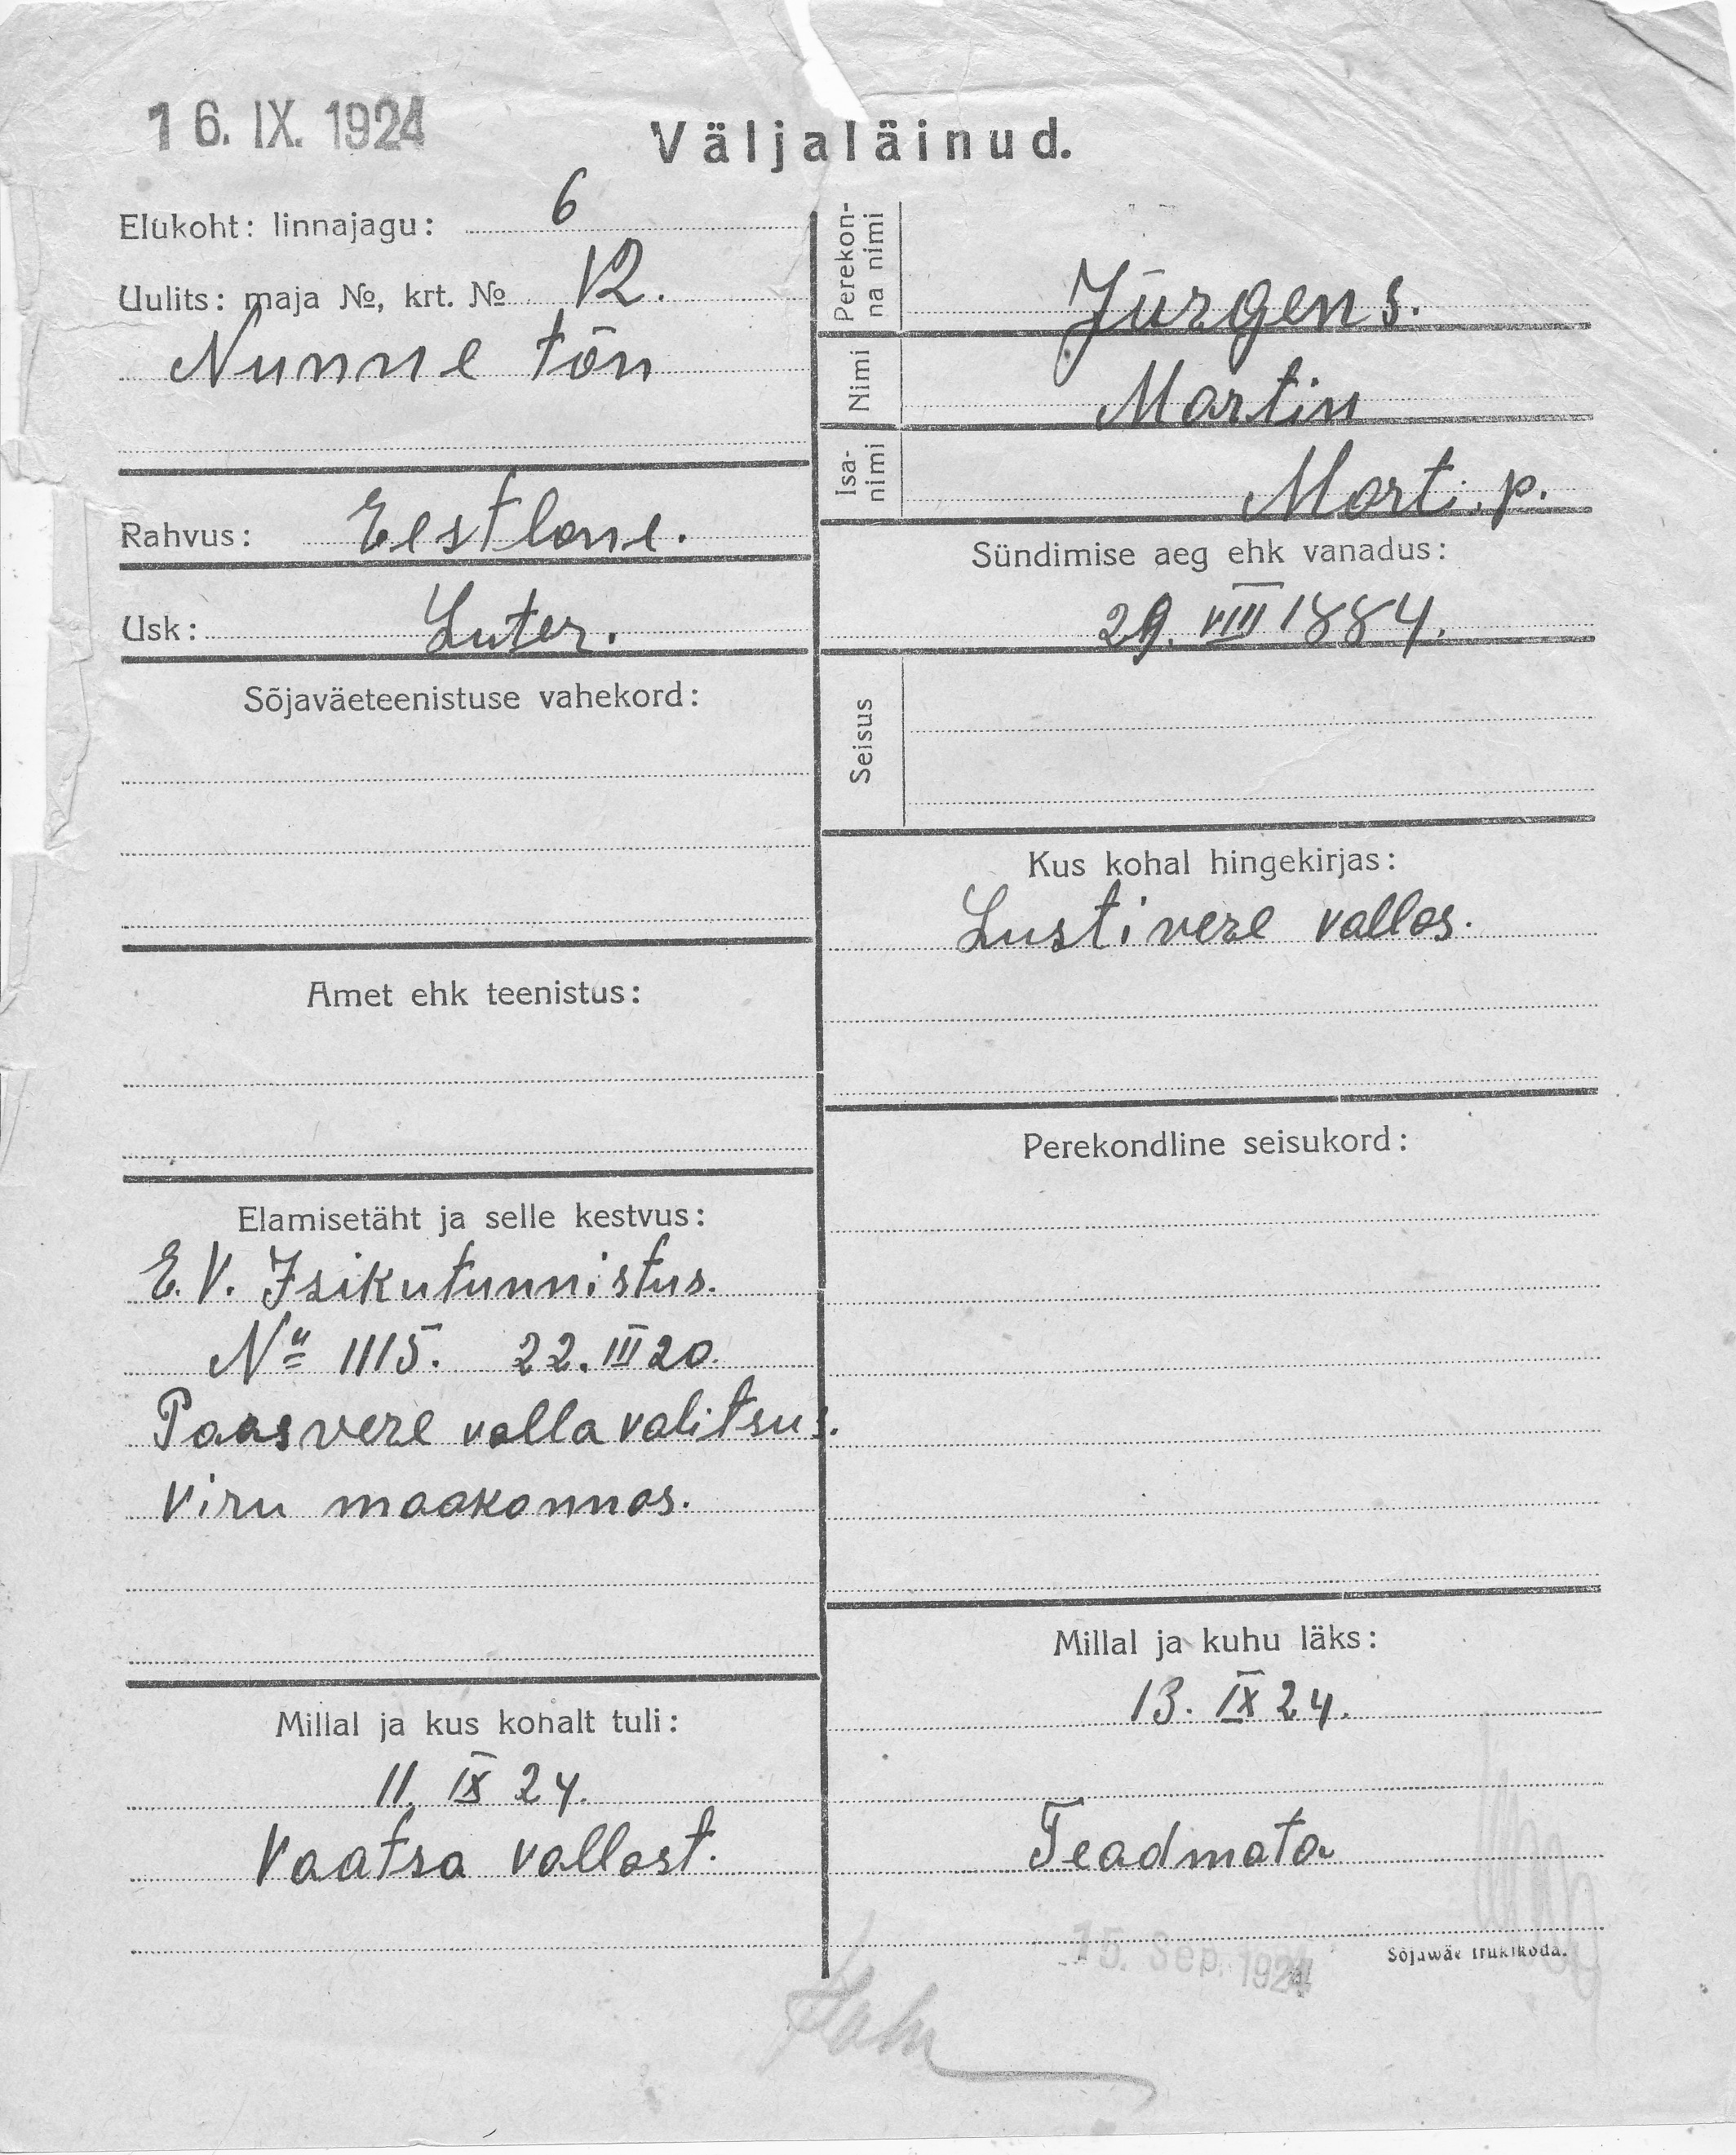 16. IX. 1924
Väljaläinud.
Elukoht: linnajagu: 6
Uulits: maja №, krt. № 12.
Nunne tän
Rahvus: Eestlane.
Usk: Luter.
Sõjaväeteenistuse vahekord:
Amet ehk teenistus:
Elamisetäht ja selle kestvus:
E.V. Isikutunnistus.
№ 1115. 22. III 20.
Paasvere vallavalitsus.
Viru maakonnas.
Millal ja kus kohalt tuli:
11. IX 24.
Vaatsa vallast.
Perekon-
na nimi
Jürgens.
Nimi
Martin
Isa-
nimi
Mart. p.
Sündimise aeg ehk vanadus:
29. VIII 1884.
Seisus
Kus kohal hingekirjas:
Lustivere vallas.
Perekondline seisukord:
Millal ja kuhu läks:
13. IX 24.
Teadmata
15. Sep. 1924
Sõjawäe trükikoda.